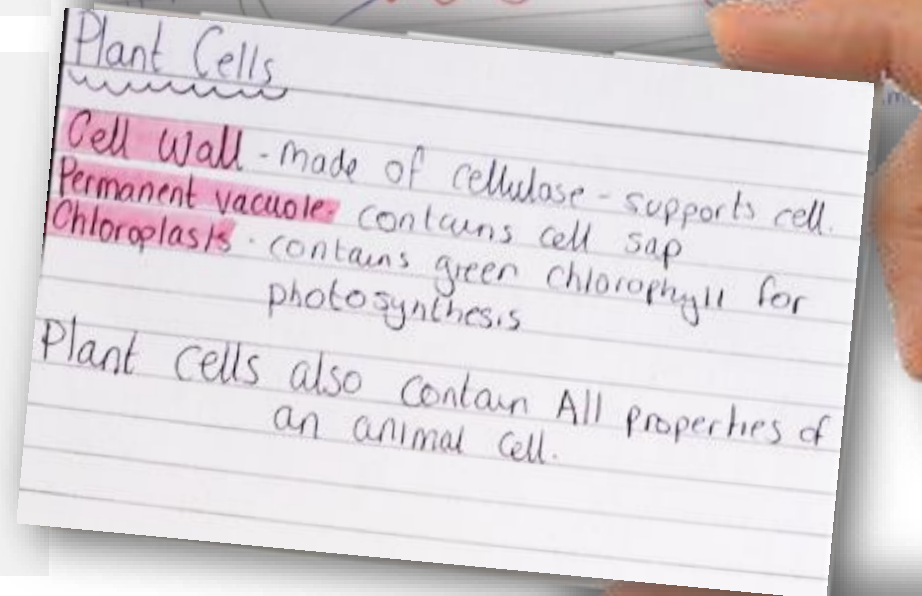 Plant Cells
Cell Wall - made of cellulase - supports cell.
Permanent vacuole: contains cell sap
Chloroplasts. contains green chlorophyll for
photosynthesis
Plant cells also contain All properties of
an animal cell.